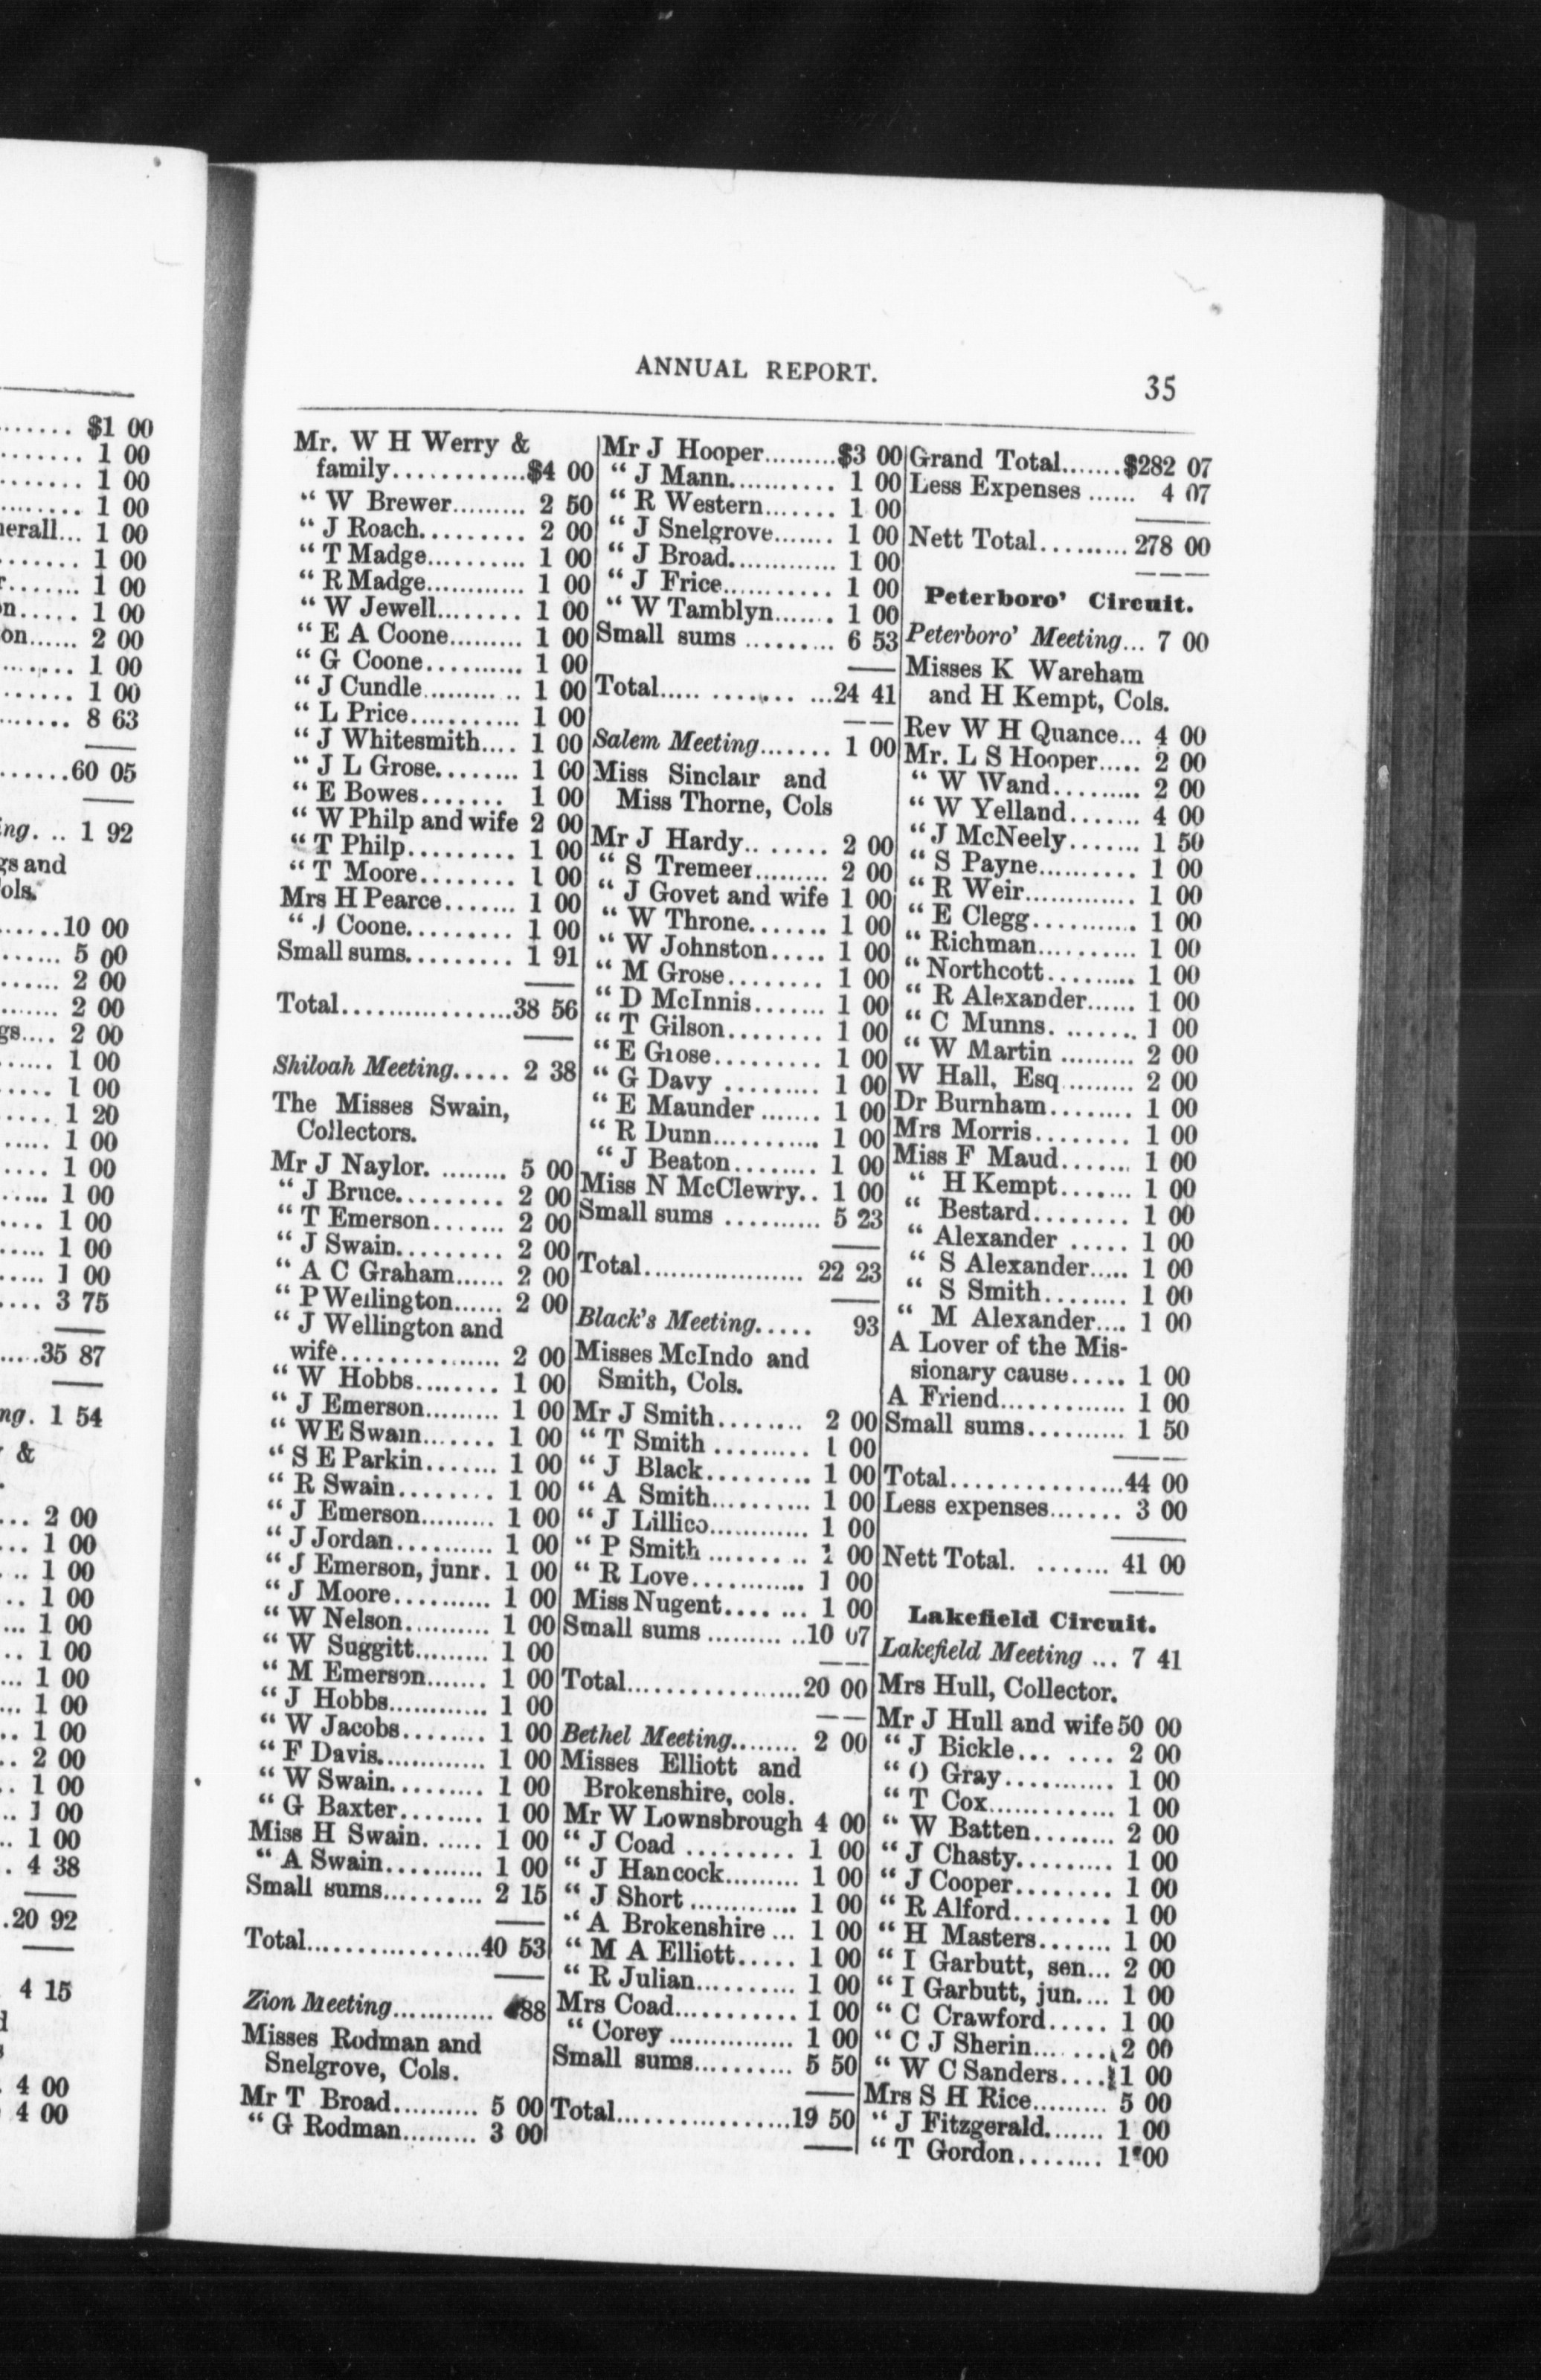 ....... $1 00
....... 1 00
....... 1 00
....... 1 00
nerall... 1 00
....... 1 00
r....... 1 00
n..... 1 00
on...... 2 00
....... 1 00
....... 1 00
....... 8 63
.......60 05
ing. .. 1 92
gs and
ols.
......10 00
...... 5 00
...... 2 00
...... 2 00
gs.... 2 00
..... 1 00
.... 1 00
..... 1 20
..... 1 00
.... 1 00
..... 1 00
.... 1 00
..... 1 00
..... 1 00
.... 3 75
.....35 87
ng. 1 54
&
... 2 00
... 1 00
... 1 00
.. 1 00
... 1 00
.. 1 00
... 1 00
... 1 00
.. 1 00
.. 2 00
.. 1 00
... 1 00
.. 1 00
. 4 38
.20 92
4 15
4 00
4 00
ANNUAL REPORT.
35
Mr. W H Werry &
family............$4 00
“ W Brewer......... 2 50
“ J Roach.......... 2 00
“ T Madge.......... 1 00
“ R Madge............ 1 00
“ W Jewell......... 1 00
“ E A Coone......... 1 00
“ G Coone.......... 1 00
“ J Cundle........... 1 00
“ L Price........... 1 00
“ J Whitesmith.... 1 00
“ J L Grose........ 1 00
“ E Bowes....... 1 00
“ W Philp and wife 2 00
“ T Philp.......... 1 00
“ T Moore......... 1 00
Mrs H Pearce....... 1 00
“ J Coone.......... 1 00
Small sums.......... 1 91
Total.................38 56
Shiloah Meeting..... 2 38
The Misses Swain,
Collectors.
Mr J Naylor. ........ 5 00
“ J Bruce.......... 2 00
“ T Emerson....... 2 00
“ J Swain.......... 2 00
“ A C Graham...... 2 00
“ P Wellington...... 2 00
“ J Wellington and
wife................ 2 00
“ W Hobbs......... 1 00
“ J Emerson......... 1 00
“ W E Swain....... 1 00
“ S E Parkin....... 1 00
“ R Swain......... 1 00
“ J Emerson......... 1 00
“ J Jordan.......... 1 00
“ J Emerson, junr. 1 00
“ J Moore.......... 1 00
“ W Nelson.......... 1 00
“ W Suggitt......... 1 00
“ M Emerson....... 1 00
“ J Hobbs............ 1 00
“ W Jacobs......... 1 00
“ F Davis............. 1 00
“ W Swain.......... 1 00
“ G Baxter......... 1 00
Miss H Swain. ..... 1 00
“ A Swain.......... 1 00
Small sums.......... 2 15
Total.................40 53
Zion Meeting............ 88
Misses Rodman and
Snelgrove, Cols.
Mr T Broad.......... 5 00
“ G Rodman......... 3 00
Mr J Hooper.........$3 00
“ J Mann............ 1 00
“ R Western....... 1 00
“ J Snelgrove....... 1 00
“ J Broad............. 1 00
“ J Frice............ 1 00
“ W Tamblyn....... 1 00
Small sums ......... 6 53
Total..... ............24 41
Salem Meeting....... 1 00
Miss Sinclair and
Miss Thorne, Cols
Mr J Hardy......... 2 00
“ S Tremeer......... 2 00
“ J Govet and wife 1 00
“ W Throne....... 1 00
“ W Johnston..... 1 00
“ M Grose......... 1 00
“ D McInnis....... 1 00
“ T Gilson......... 1 00
“ E Grose.......... 1 00
“ G Davy .......... 1 00
“ E Maunder ....... 1 00
“ R Dunn............ 1 00
“ J Beaton......... 1 00
Miss N McClewry.. 1 00
Small sums .......... 5 23
Total................... 22 23
Black's Meeting..... 93
Misses McIndo and
Smith, Cols.
Mr J Smith......... 2 00
“ T Smith .......... 1 00
“ J Black.......... 1 00
“ A Smith........... 1 00
“ J Lillico............ 1 00
“ P Smith .......... 1 00
“ R Love............. 1 00
Miss Nugent....... 1 00
Small sums ...........10 07
Total..................20 00
Bethel Meeting........ 2 00
Misses Elliott and
Brokenshire, cols.
Mr W Lownsbrough 4 00
“ J Coad .......... 1 00
“ J Hancock......... 1 00
“ J Short ............. 1 00
“ A Brokenshire ... 1 00
“ M A Elliott..... 1 00
“ R Julian........... 1 00
Mrs Coad............ 1 00
“ Corey ............... 1 00
Small sums........... 5 50
Total..................19 50
Grand Total.......$282 07
Less Expenses ...... 4 07
Nett Total..........278 00
Peterboro' Circuit.
Peterboro' Meeting... 7 00
Misses K Wareham
and H Kempt, Cols.
Rev W H Quance... 4 00
Mr. L S Hooper..... 2 00
“ W Wand......... 2 00
“ W Yelland....... 4 00
“ J McNeely....... 1 50
“ S Payne.......... 1 00
“ R Weir............. 1 00
“ E Clegg............ 1 00
“ Richman.......... 1 00
“ Northcott......... 1 00
“ R Alexander...... 1 00
“ C Munns. ....... 1 00
“ W Martin ......... 2 00
W Hall, Esq ......... 2 00
Dr Burnham......... 1 00
Mrs Morris......... 1 00
Miss F Maud....... 1 00
“ H Kempt....... 1 00
“ Bestard......... 1 00
“ Alexander ..... 1 00
“ S Alexander..... 1 00
“ S Smith........ 1 00
“ M Alexander.... 1 00
A Lover of the Mis-
sionary cause..... 1 00
A Friend............. 1 00
Small sums.......... 1 50
Total.................44 00
Less expenses....... 3 00
Nett Total. ........ 41 00
Lakefield Circuit.
Lakefield Meeting ... 7 41
Mrs Hull, Collector.
Mr J Hull and wife 50 00
“ J Bickle... .... 2 00
“ O Gray............ 1 00
“ T Cox.............. 1 00
“ W Batten......... 2 00
“ J Chasty.......... 1 00
“ J Cooper......... 1 00
“ R Alford......... 1 00
“ H Masters....... 1 00
“ I Garbutt, sen... 2 00
“ I Garbutt, jun.... 1 00
“ C Crawford..... 1 00
“ C J Sherin....... 2 00
“ W C Sanders.... 1 00
Mrs S H Rice......... 5 00
“ J Fitzgerald....... 1 00
“ T Gordon......... 1 00